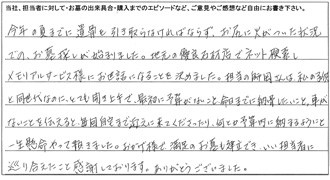 当社、担当者に対して・お墓の出来具合・購入までのエピソードなど、ご意見やご感想など自由にお書き下さい。
今年の夏までに遺骨を引き取らなければならず、お尻に火がついた状況
での、お墓探しが始まりました。地元の優良石材店でネット検索し
メモリアルサービス様にお世話になることを決めました。担当の 様は、私の子供
と同世代なのに、とても聞き上手で、最初に予算がないこと、命日までに納骨したいこと、車が
ないことを伝えると、毎回自宅まで迎えに来てくださったり、何とか予算内に納まるようにと
一生懸命やって頂きました。おかげ様で満足のお墓も建立でき、いい担当者に
巡り合えたこと感謝しております。ありがとうございました。